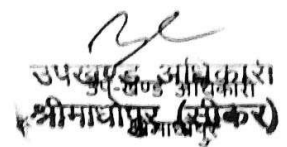 उपखण्ड अधिकारी
उप-खण्ड अधिकारी
श्रीमाधोपुर (सीकर)
श्रीमाधोपुर